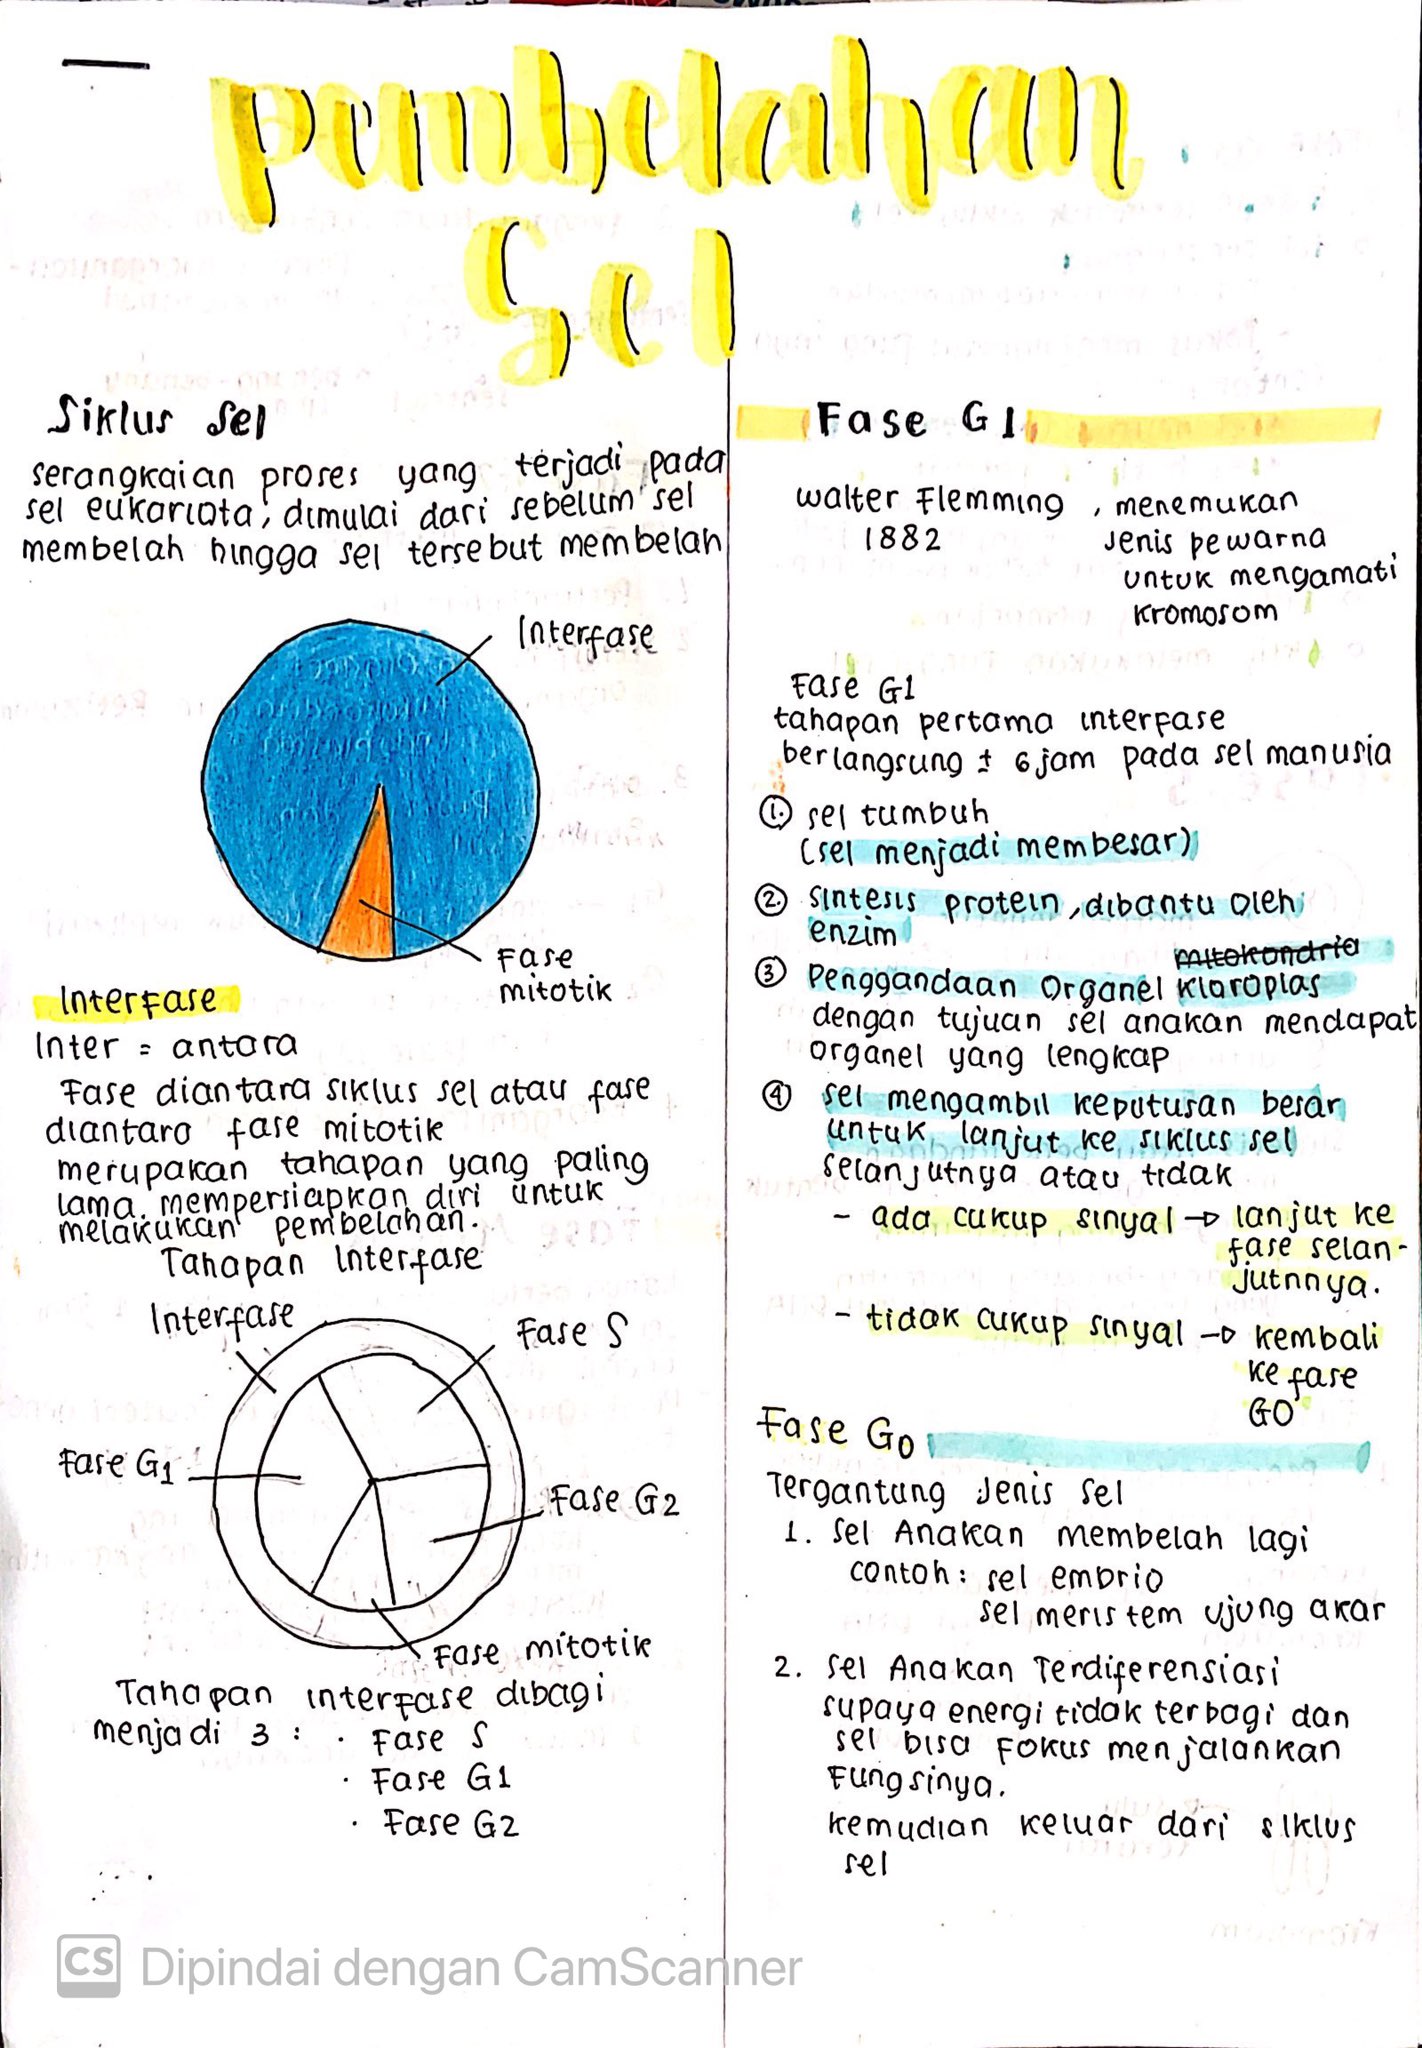 pembelahan
Sel
Siklus Sel
serangkaian proses yang terjadi pada
sel eukariota, dimulai dari sebelum sel
membelah hingga sel tersebut membelah
Interfase
Fase
mitotik
Interfase
Inter = antara
Fase diantara siklus sel atau fase
diantara fase mitotik
merupakan tahapan yang paling
lama. mempersiapkan diri untuk
melakukan pembelahan.
Tahapan Interfase
Interfase
Fase S
Fase G1
Fase G2
Fase mitotik
Tahapan interfase dibagi
menjadi 3 : · Fase S
· Fase G1
· Fase G2
Fase G1
Walter Flemming , menemukan
1882 Jenis pewarna
untuk mengamati
kromosom
Fase G1
tahapan pertama interfase
berlangsung ± 6 jam pada sel manusia
1. sel tumbuh
(sel menjadi membesar)
2. sintesis protein, dibantu oleh
enzim
mitokondria
3 Penggandaan Organel kloroplas
dengan tujuan sel anakan mendapat
organel yang lengkap
4 sel mengambil keputusan besar
untuk lanjut ke siklus sel
selanjutnya atau tidak
- ada cukup sinyal → lanjut ke
fase selan-
jutnnya.
- tidak cukup sinyal → kembali
ke fase
G0
Fase G0
Tergantung Jenis sel
1. Sel Anakan membelah lagi
contoh : sel embrio
sel meristem ujung akar
2. Sel Anakan Terdiferensiasi
supaya energi tidak terbagi dan
sel bisa fokus menjalankan
fungsinya.
kemudian keluar dari siklus
sel
CS Dipindai dengan CamScanner